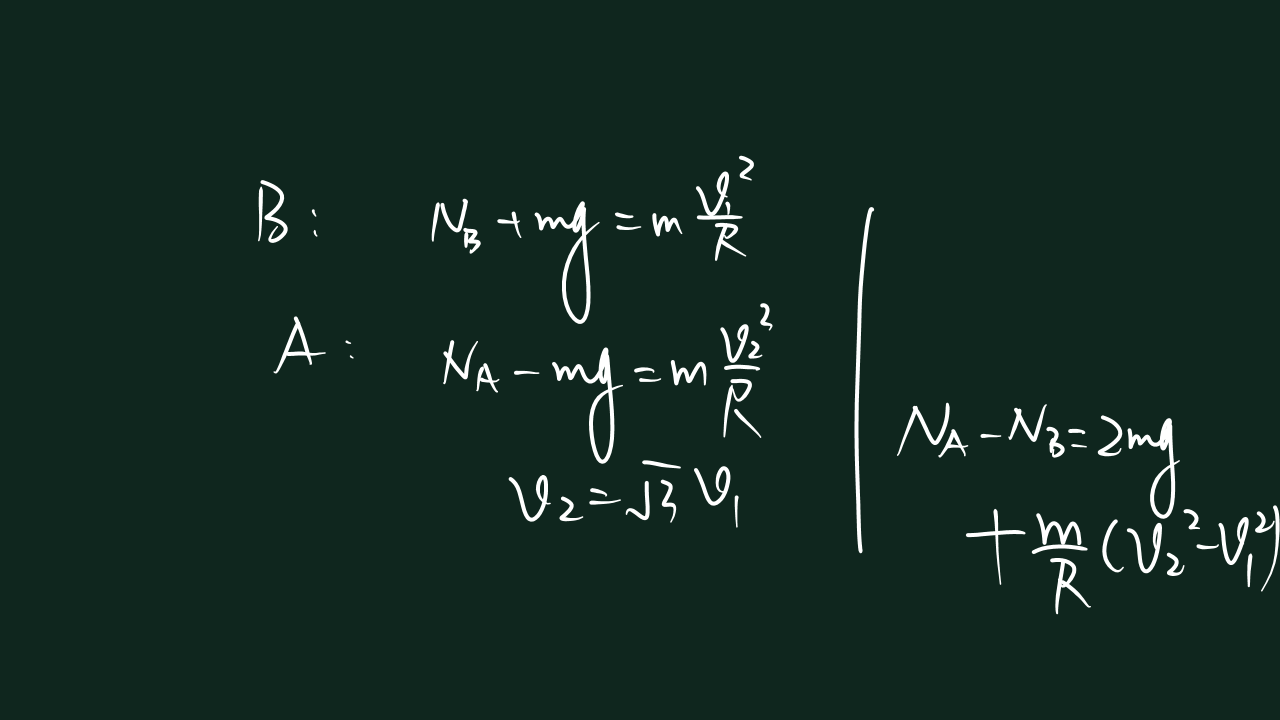 B: N_B + mg = m v₁²/R
A: N_A − mg = m v₂²/R
v₂ = √3 v₁
N_A − N_B = 2mg
+ m/R (v₂² − v₁²)